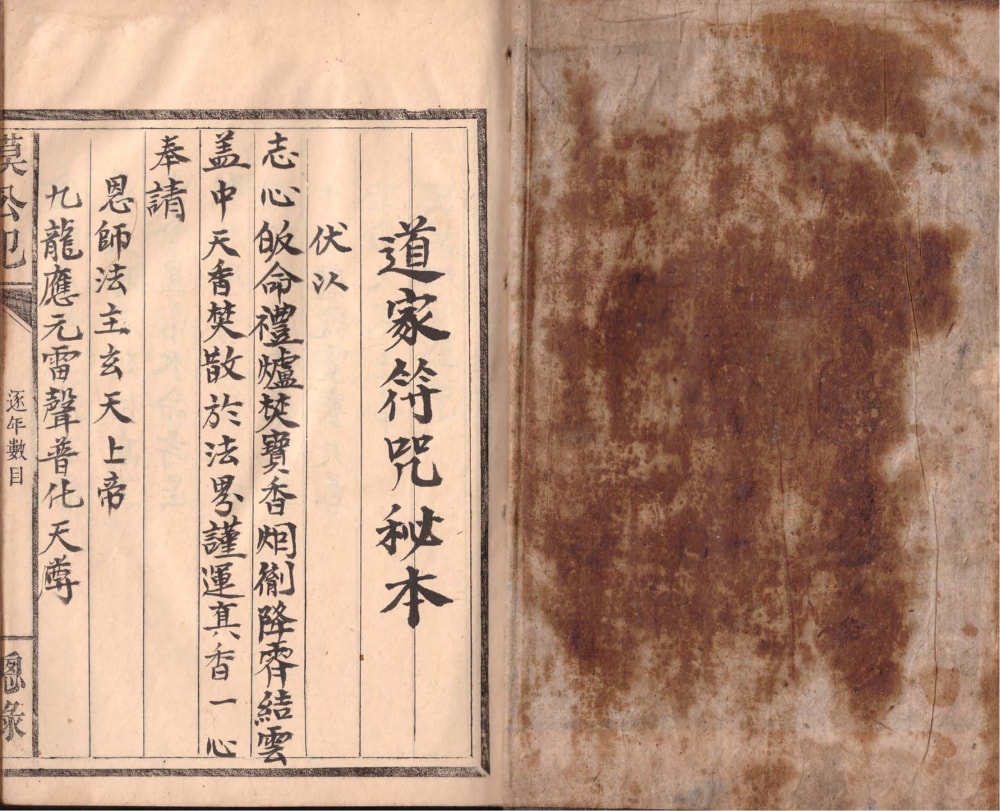 道家符咒秘本
伏以
志心皈命禮爐焚寶香烟衝降霄結雲
盖中天香焚散於法界謹運真香一心
奉請
恩師法主玄天上帝
九龍應元雷聲普化天尊
逐年數目